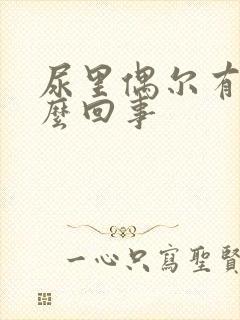 尿里偶尔有
麼回事
一心只寫聖賢